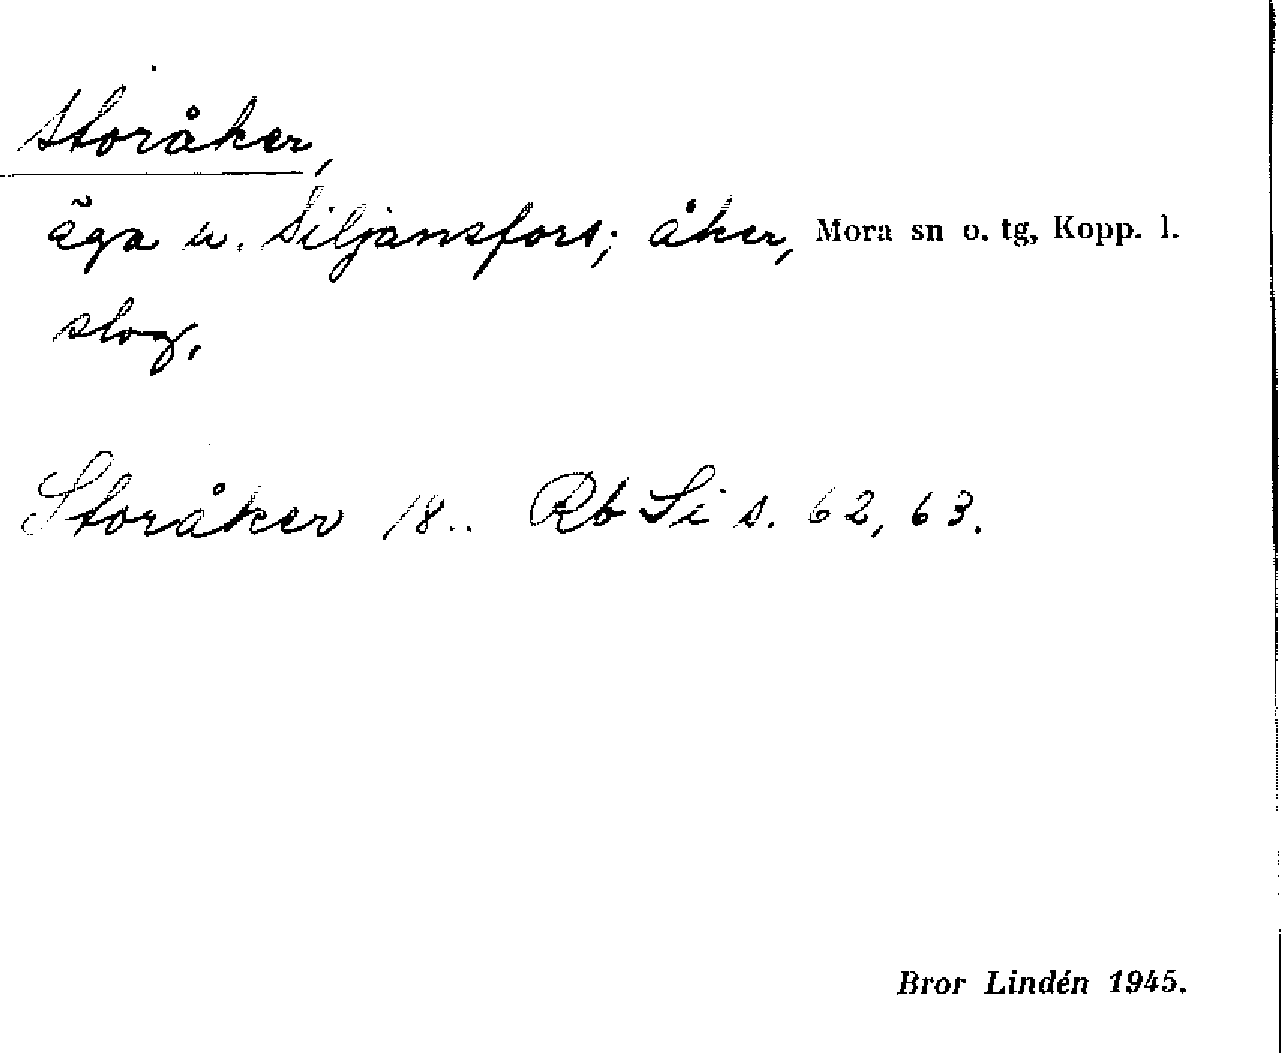 Storåker,
äga u. Siljansfors; åker, Mora sn o. tg, Kopp. l.
slog.
Storåker 18.. Rb Si s. 62, 63.
Bror Lindén 1945.